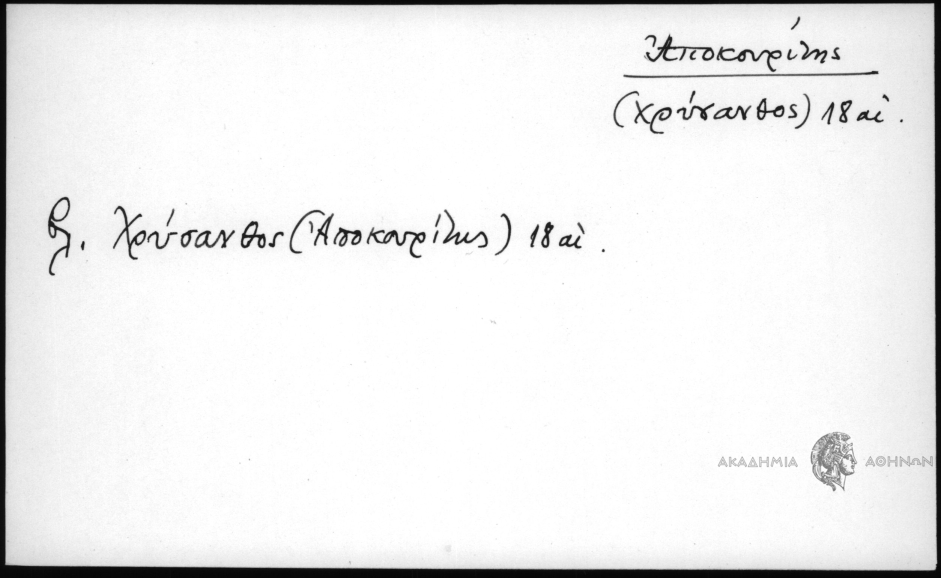 Ἀποκουρίτης
(Χρύσανθος) 18 αἰ.
βλ. Χρύσανθος (Ἀποκουρίτης) 18 αἰ.
ΑΚΑΔΗΜΙΑ ΑΘΗΝΩΝ